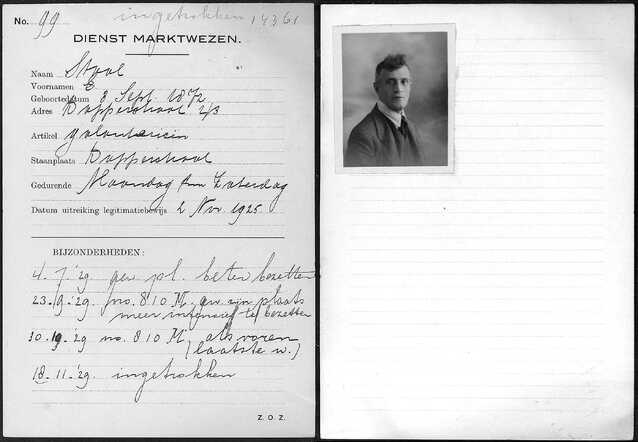 No. 99 ingetrokken 14361
DIENST MARKTWEZEN.
Naam Stool
Voornamen E
Geboortedatum 8 Sept. 1872
Adres Dapperstraat 2/3
Artikel galanterieën
Staanplaats Dapperstraat
Gedurende Maandag t/m Zaterdag
Datum uitreiking legitimatiebewijs 2 Nov. 1925
BIJZONDERHEDEN:
4-7-'29 gew. pl. beter bezetten
23-9-'29 mo. 810 M. gew zijn plaats
meer intensief te bezetten
30-9-'29 mo. 810 M als voren
(laatste w.)
18-11-'29 ingetrokken
Z. O. Z.